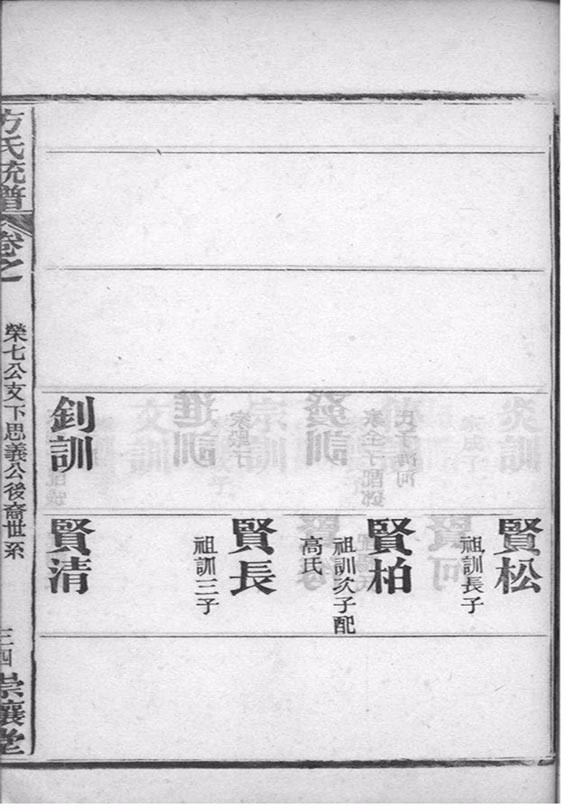 賢松
祖訓長子
賢柏
祖訓次子配
高氏
賢長
祖訓三子
釗訓
賢清
方氏統譜
卷之
榮七公支下思義公後裔世系
三四
崇讓堂